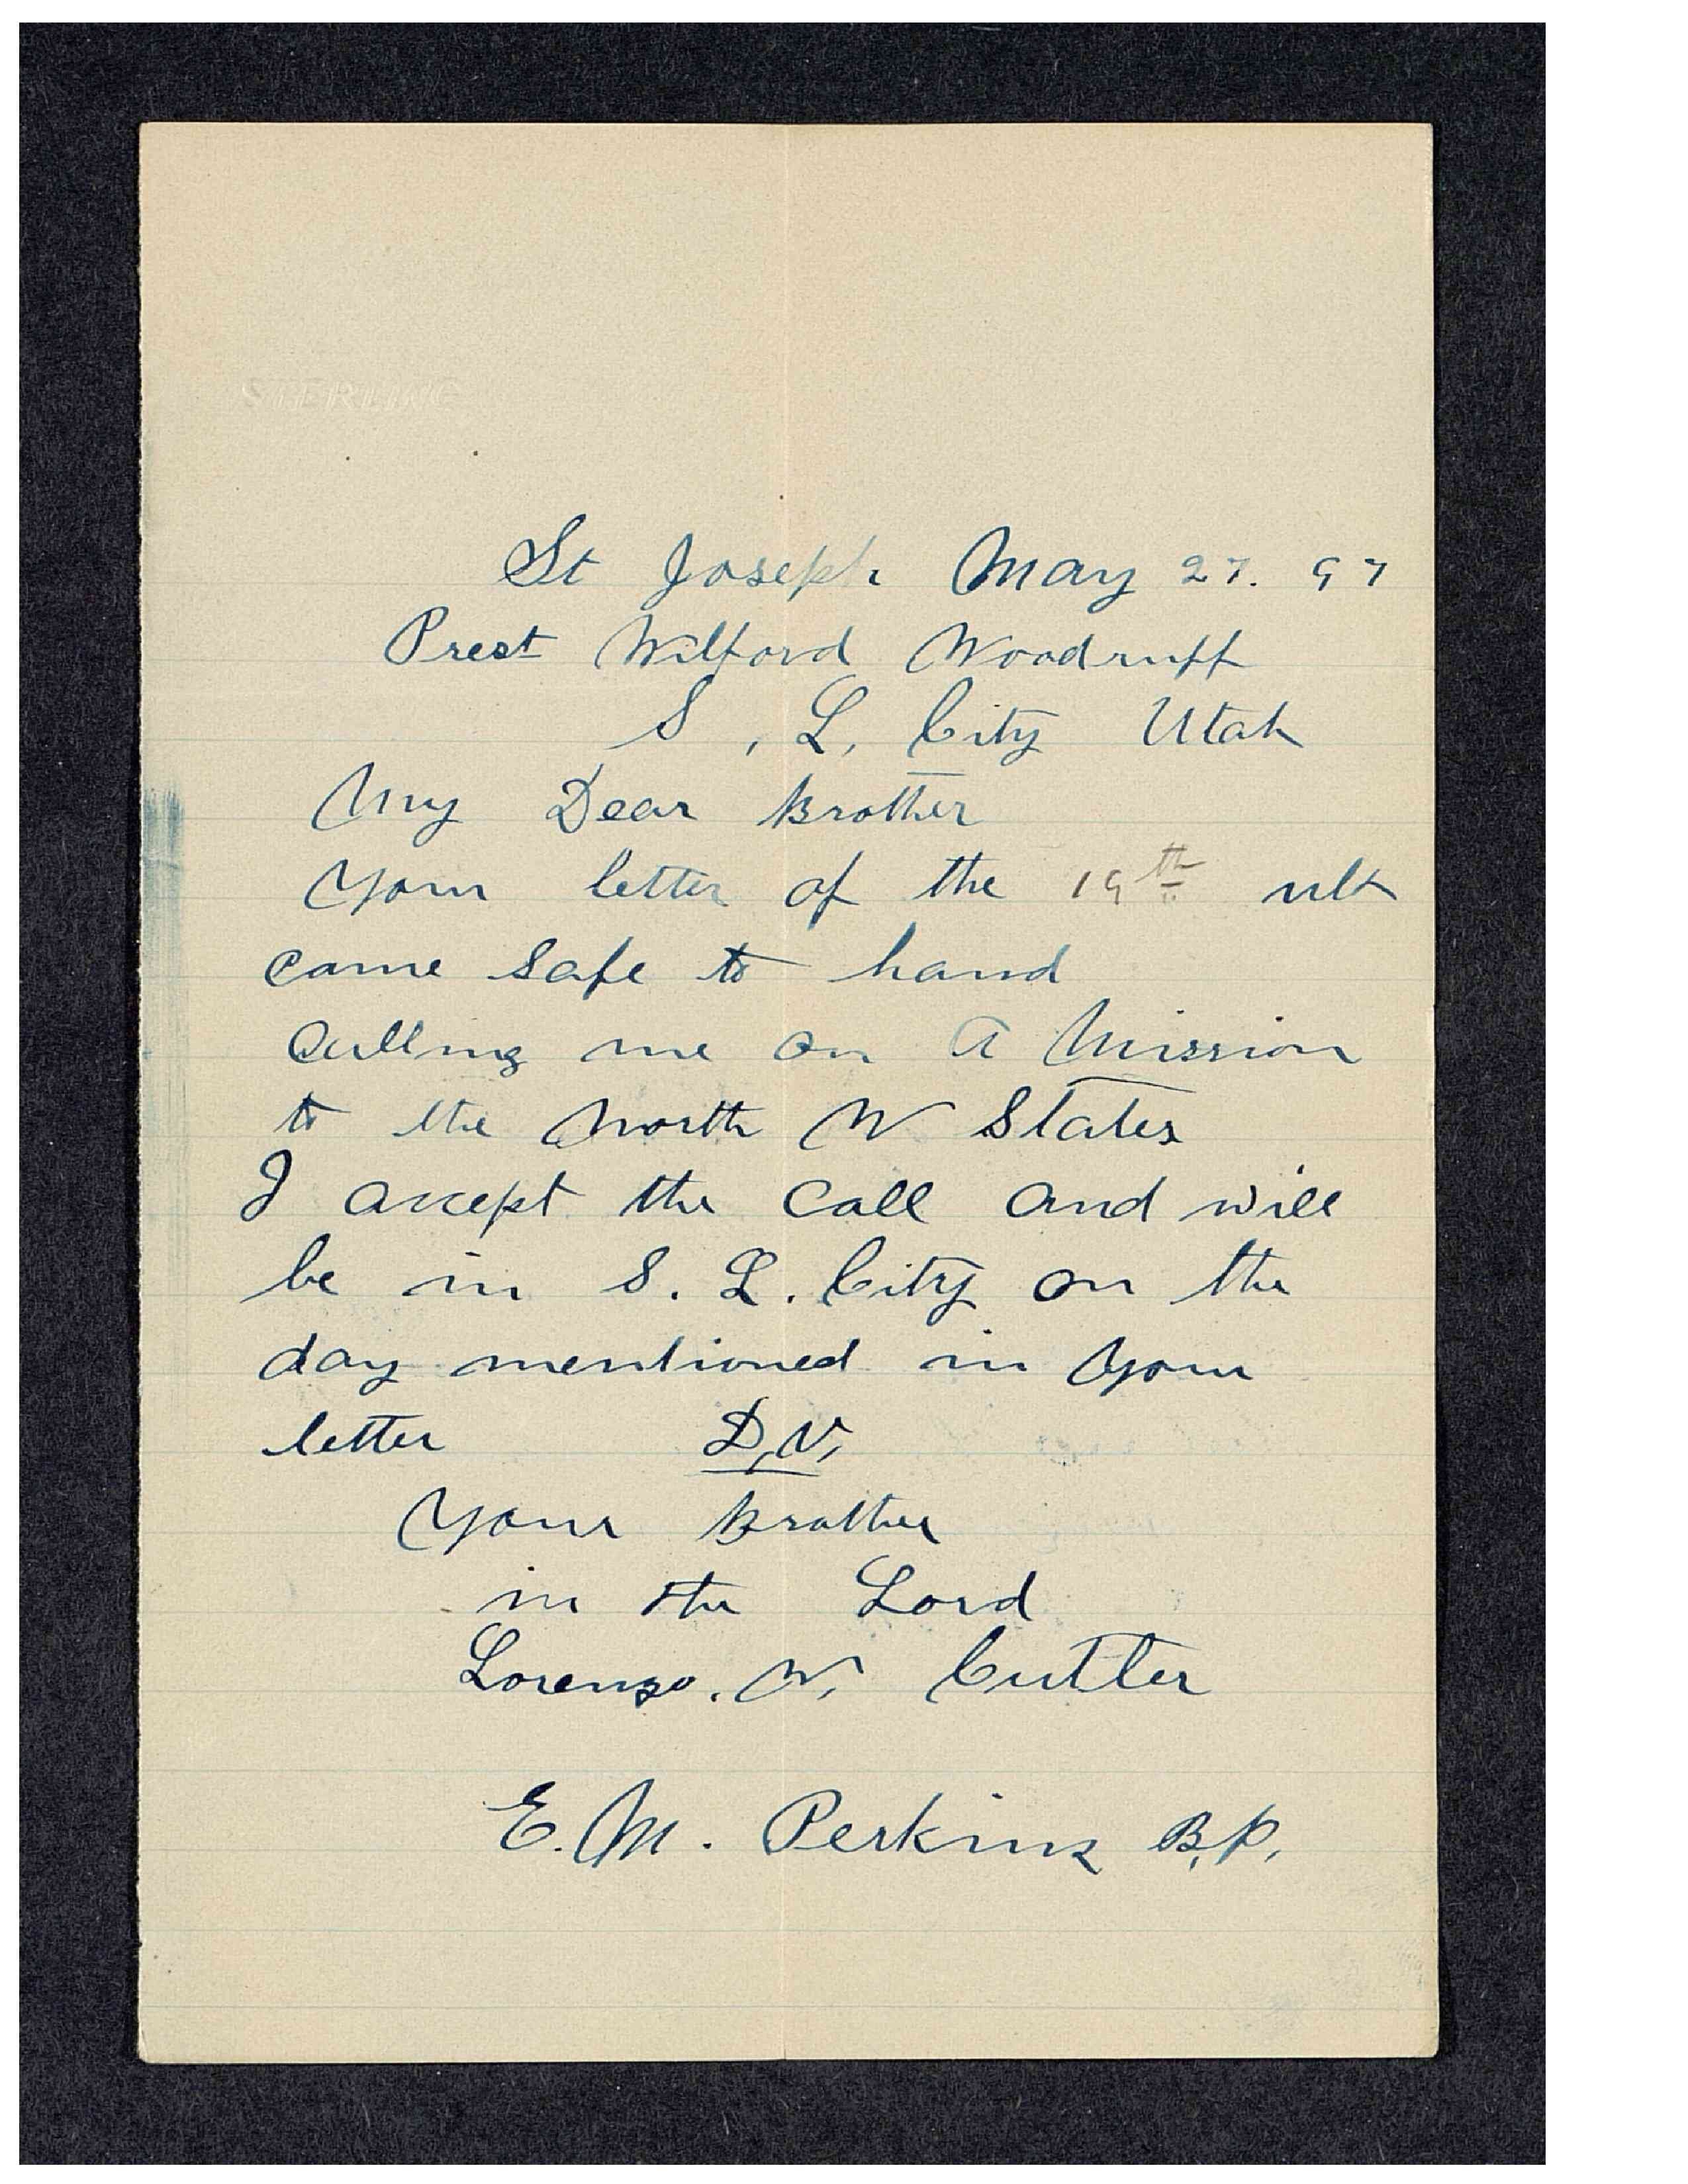 STERLING
St Joseph May 27. 97
Prest Wilford Woodruff
S, L, City Utah
My Dear Brother
Your letter of the 19th ult
came safe to hand
Calling me on a Mission
to the North W States
I accept the call and will
be in S. L. City on the
day mentioned in your
letter D,V,
Your Brother
in the Lord
Lorenzo. W, Cutler
E. M. Perkins B,P,